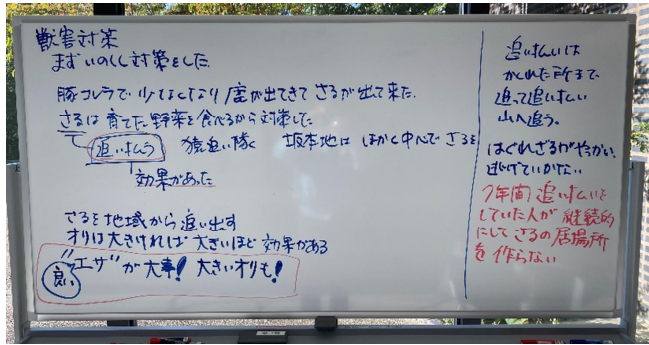 獣害対策
まずいのしし対策をした
豚コレラで少なくなり鹿が出てきてさるが出て来た
さるは育てた野菜を食べるから対策した
追い払う 猿追い隊く 坂本地は ほかく中心でさるを
効果があった
さるを地域から追い出す
オリは大きければ大きいほど効果がある
良い "エサ"が大事! 大きいオリも!
追い払いは
かくれた所まで
追って追い払い
山へ追う。
はぐれざるがやっかい
逃げていかない
7年間追い払いを
していた人が継続的
にしてさるの居場所
を作らない